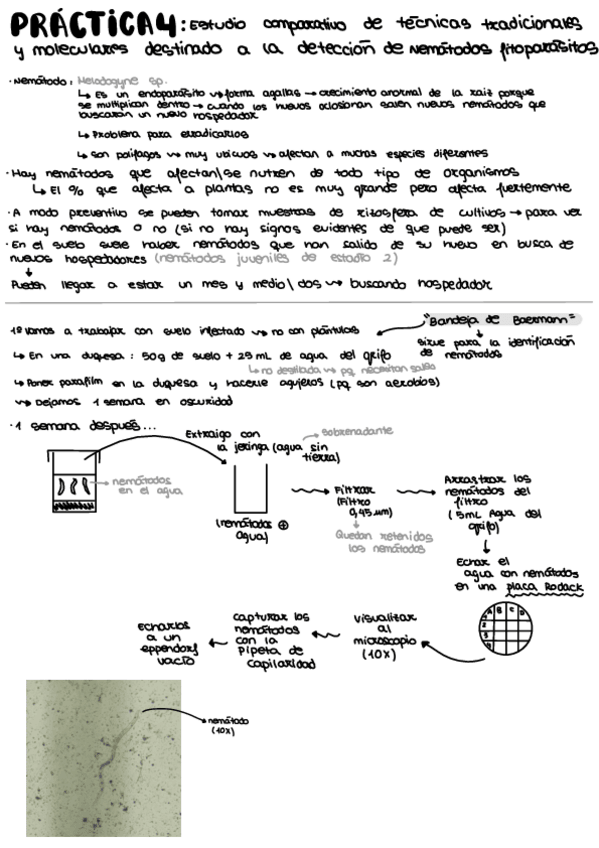 PRÁCTICA4: Estudio comparativo de técnicas tradicionales
y moleculares destinado a la detección de nemátodos fitoparásitos
· Nemátodo: Meloidogyne sp.
↳ Es un endoparásito ⇝ forma agallas → crecimiento anormal de la raíz porque
se multiplican dentro → cuando los huevos eclosionan salen nuevos nemátodos que
buscarán un nuevo hospedador
↳ Problema para erradicarlos
↳ Son polífagos ⇝ muy ubicuos ⇝ afectan a muchas especies diferentes
· Hay nemátodos que afectan\se nutren de todo tipo de organismos
↳ El % que afecta a plantas no es muy grande pero afecta fuertemente
· A modo preventivo se pueden tomar muestras de rizosfera de cultivos → para ver
si hay nemátodos o no (si no hay signos evidentes de que puede ser)
· En el suelo suele haber nemátodos que han salido de su huevo en busca de
nuevos hospedadores (nemátodos juveniles de estadio 2)
↓
Pueden llegar a estar un mes y medio\dos ⇝ buscando hospedador
"Bandeja de Baermann"
↓
sirve para la identificación
de nemátodos
1º Vamos a trabajar con suelo infectado ⇝ no con plántulas
↳ En una duquesa: 50g de suelo + 25 mL de agua del grifo
↳ no destilada ⇝ pq necesitan sales
↳ Poner parafilm en la duquesa y hacerle agujeros (pq son aerobios)
⇝ Dejamos 1 semana en oscuridad
· 1 semana después...
nemátodos
en el agua
Extraigo con
la jeringa (agua sin
tierra)
→ sobrenadante
(nemátodos ⊕
agua)
Filtrar
(Filtro
0,45 µm)
↓
Quedan retenidos
los nemátodos
Arrastrar los
nemátodos del
filtro
(5mL Agua del
grifo)
↓
Echar el
agua con nemátodos
en una placa Rodack
A B C D
2
3
Visualizar
al
microscopio
(10x)
capturar los
nemátodos
con la
pipeta de
capilaridad
Echarlos
a un
eppendorf
vacío
nemátodo
(10x)